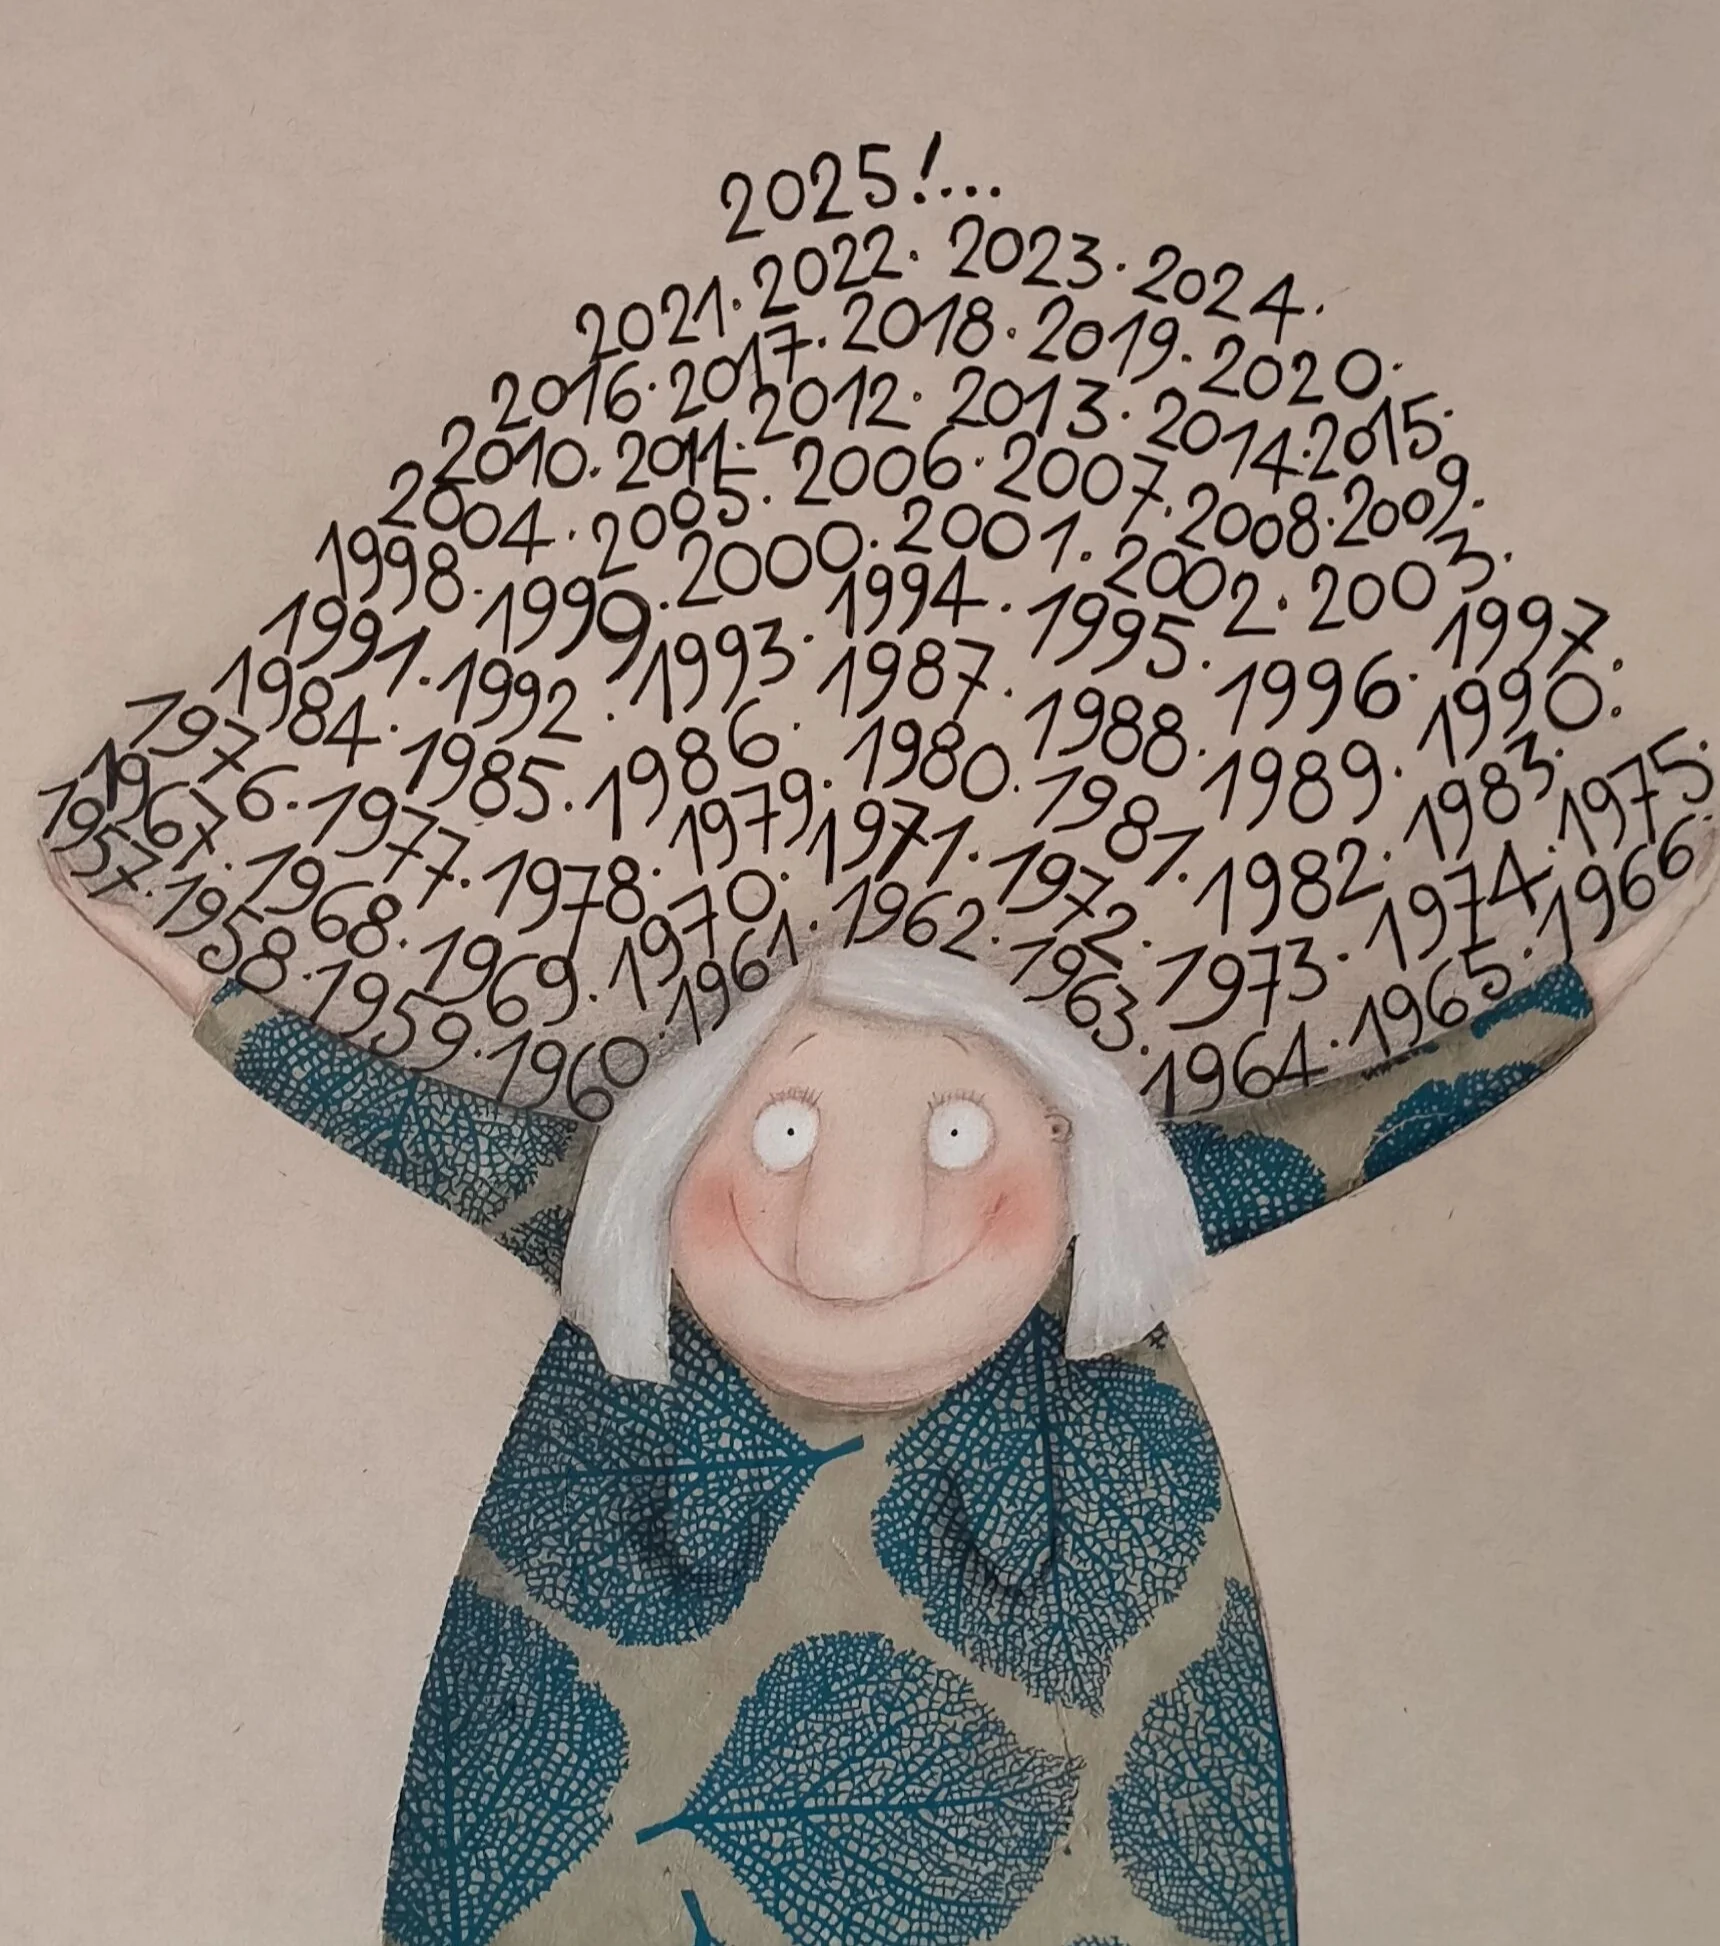 2025!...
2021.2022.2023.2024.
2016.2017.2018.2019.2020.
2010.2011.2012.2013.2014.2015.
2004.2005.2006.2007.2008.2009.
1998.1999.2000.2001.2002.2003.
1991.1992.1993.1994.1995.1996.1997.
1984.1985.1986.1987.1988.1989.1990.
1976.1977.1978.1979.1980.1981.1982.1983.
1967.1968.1969.1970.1971.1972.1973.1974.1975.
1957.1958.1959.1960.1961.1962.1963.1964.1965.1966.